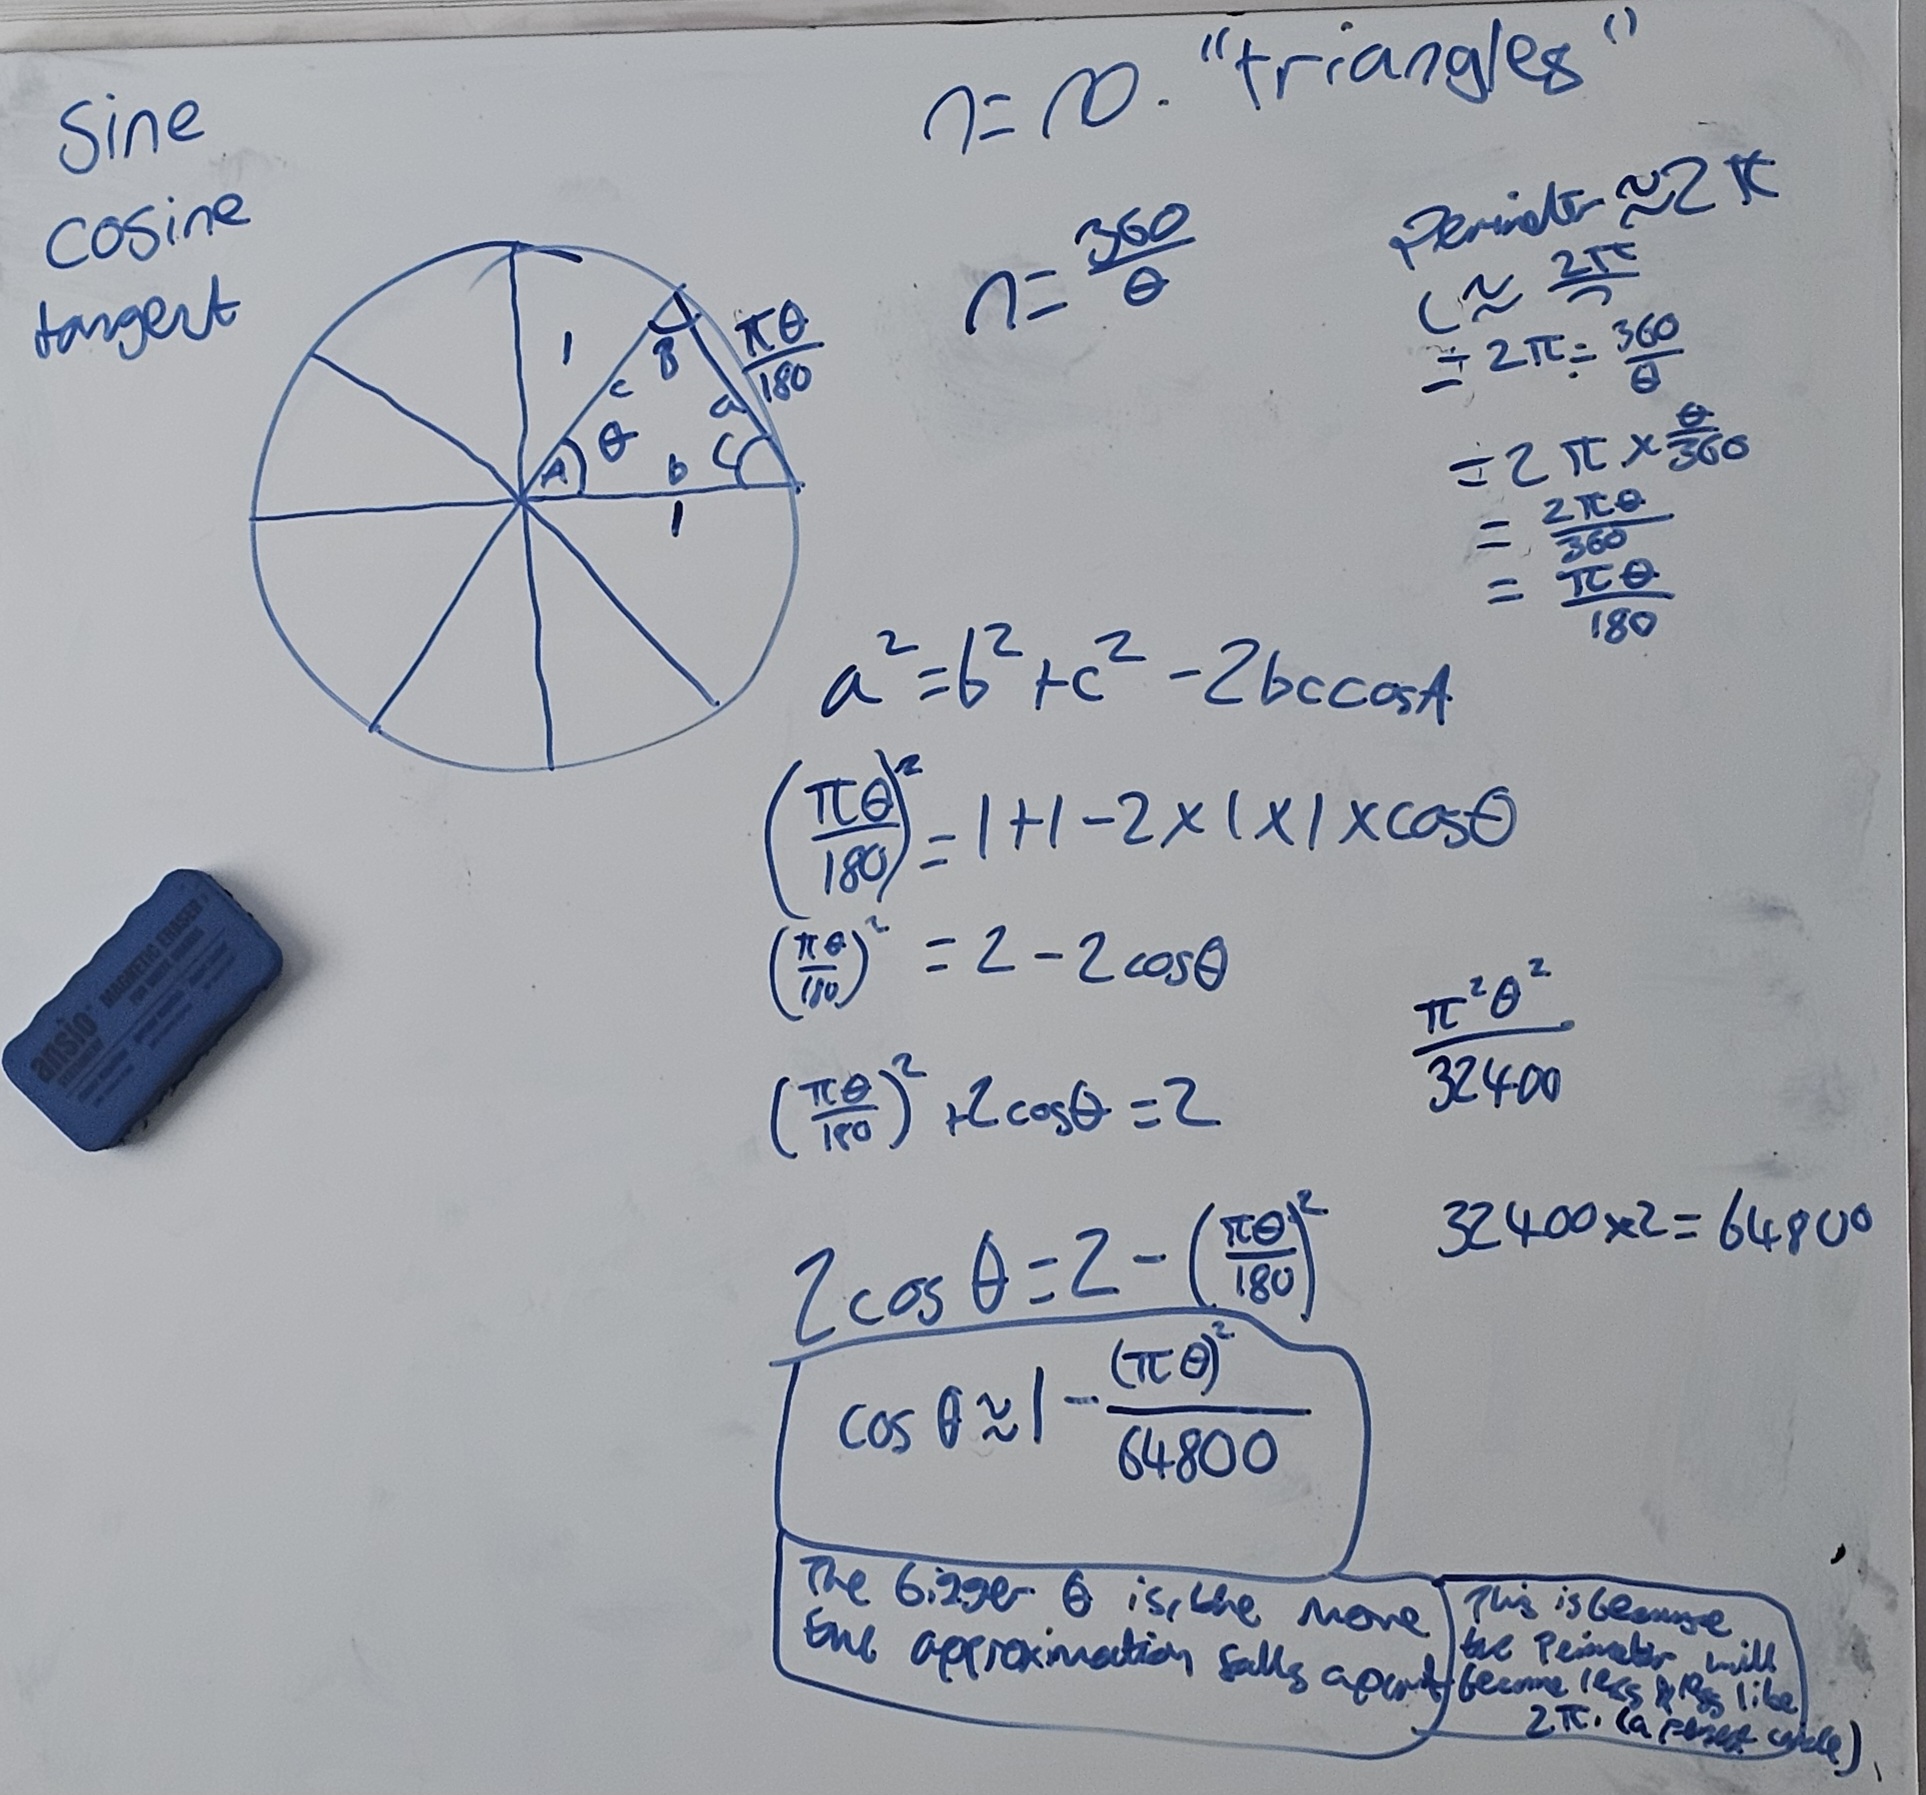 Sine
cosine
tangent
n=∞. "triangles"
n=360/θ
Perimeter ≈2π
≈ 2π/n
= 2π ÷ 360/θ
= 2π × θ/360
= 2πθ/360
= πθ/180
1
B
c
a
πθ/180
A
θ
b
C
1
a²=b²+c²-2bccosA
(πθ/180)²=1+1-2×1×1×cosθ
(πθ/180)² = 2-2cosθ
π²θ²/32400
(πθ/180)²+2cosθ=2
32400×2=64800
2cosθ=2-(πθ/180)²
cosθ≈1-(πθ)²/64800
The bigger θ is, the more
the approximation falls apart
This is because
the Perimeter will
become less & less like
2π. (a perfect circle).
ansio
MAGNETIC ERASER